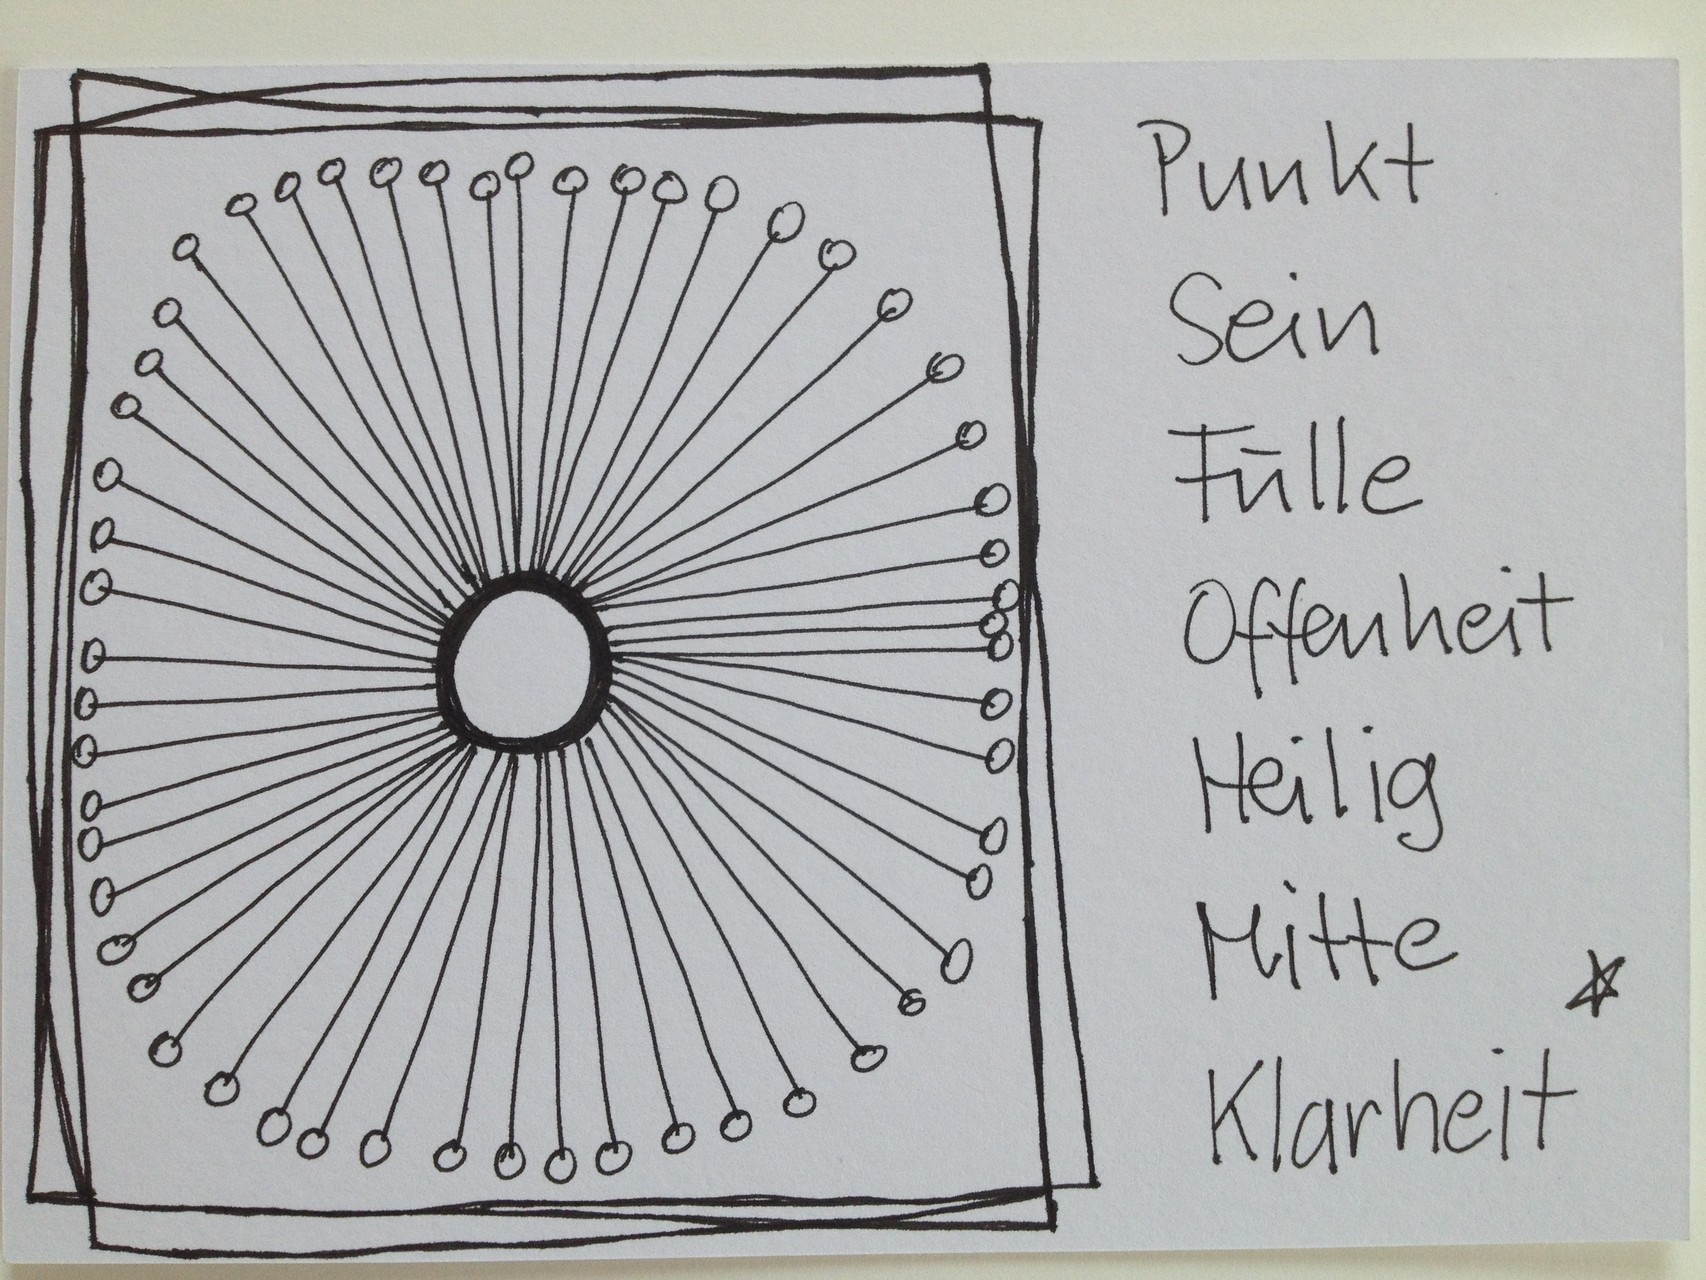 Punkt
Sein
Fülle
Offenheit
Heilig
Mitte
Klarheit